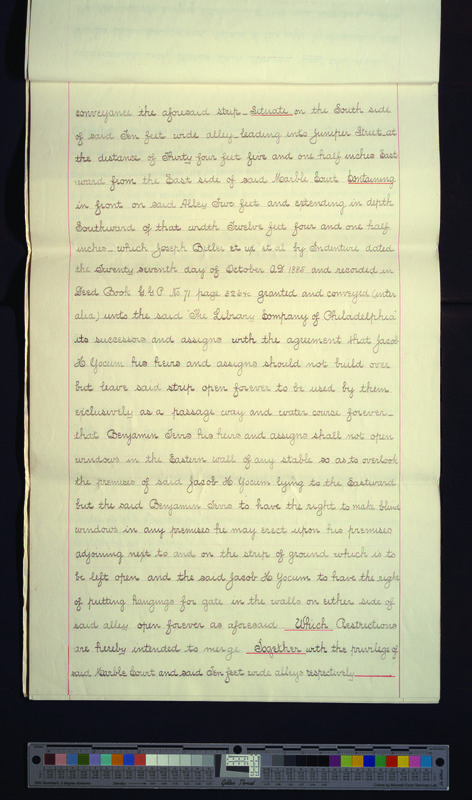 conveyance the aforesaid strip Situate on the South side
of said Ten feet wide alley leading into Juniper Street at
the distance of Thirty four feet five and one half inches East
ward from the East side of said Marble Court Containing
in front on said Alley Two feet and extending in depth
Southward of that width Twelve feet four and one half
inches which Joseph et ux et al by Indenture dated
the Twenty seventh day of October AD 1885 and recorded in
Deed Book G.G.P. No 71 page &c granted and conveyed (inter
alia) unto the said "The Library Company of Philadelphia"
its successors and assigns with the agreement that Jacob
H Yocum his heirs and assigns should not build over
but leave said strip open forever to be used by them
exclusively as a passage way and water course forever
that Benjamin his heirs and assigns shall not open
windows in the Eastern wall of any stable so as to overlook
the premises of said Jacob H. Yocum lying to the Eastward
but the said Benjamin to have the right to make blind
windows in any premises he may erect upon his premises
adjoining next to and on the strip of ground which is to
be left open and the said Jacob H Yocum to have the right
of putting hangings for gate in the walls on either side of
said alley open forever as aforesaid Which Restrictions
are hereby intended to merge Together with the privilege of
said Marble Court and said Ten feet wide alleys respectively